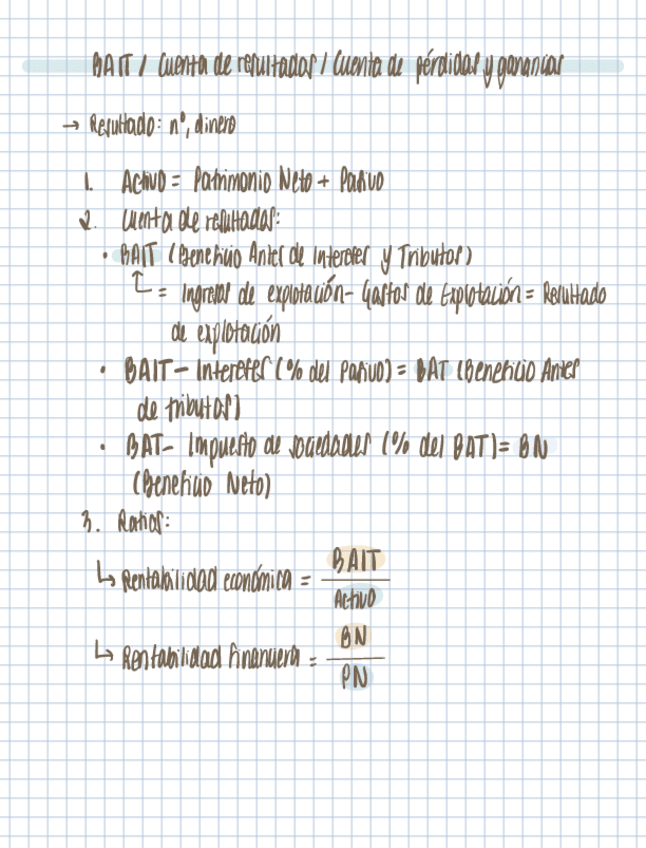 BAIT / Cuenta de resultados / Cuenta de pérdidas y ganancias
→ Resultado: nº, dinero
1. Activo = Patrimonio Neto + Pasivo
2. Cuenta de resultados:
• BAIT (Beneficio Antes de Intereses y Tributos)
= Ingresos de explotación - Gastos de Explotación = Resultado
de explotación
• BAIT - Intereses (% del Pasivo) = BAT (Beneficio Antes
de tributos)
• BAT - Impuesto de sociedades (% del BAT) = BN
(Beneficio Neto)
3. Ratios:
↳ Rentabilidad económica = BAIT
Activo
↳ Rentabilidad financiera = BN
PN